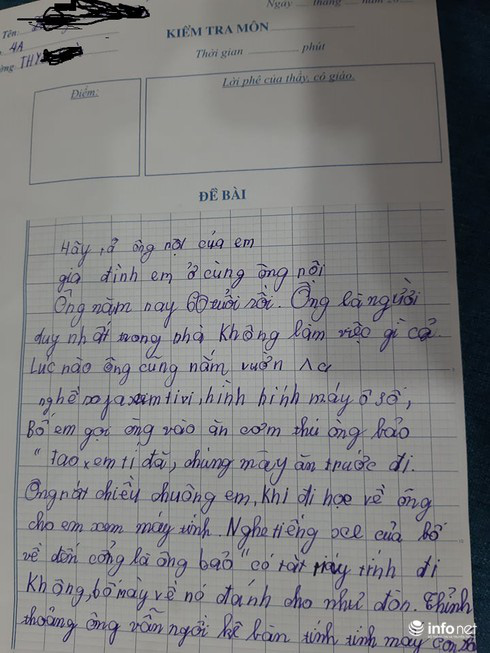 Ngày tháng năm 20
Tên
4A
KIỂM TRA MÔN
THY
Thời gian phút
Điểm:
Lời phê của thầy, cô giáo.
ĐỀ BÀI
Hãy tả ông nội của em
gia đình em ở cùng ông nội
Ông năm nay 60 tuổi rồi. Ông là người
duy nhất trong nhà Không làm việc gì cả
Luc nào ông cũng nằm vườn
xem tivi, hình hình máy ô số,
Bố em gọi ông vào ăn cơm thì ông bảo
"Tao xem tí đã, chúng mày ăn trước đi.
Ông rất chiều chuông em, Khi đi học về ông
cho em xem máy tính. Nghe tiếng xe của bố
về đến cổng là ông bảo "có tắt máy tính đi
Không, bố mày về nó đánh cho như đòn. Thỉnh
thoảng ông vẫn ngồi kê bàn tính tính mấy con
infonet